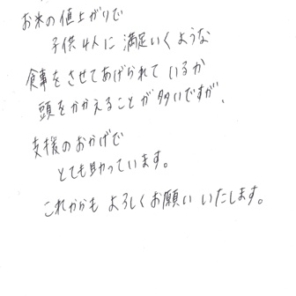 お米の値上がりで
子供4人に満足いくような
食事をさせてあげられているか
頭をかかえることが多いですが、
支援のおかげで
とても助っています。
これからも よろしくお願い いたします。